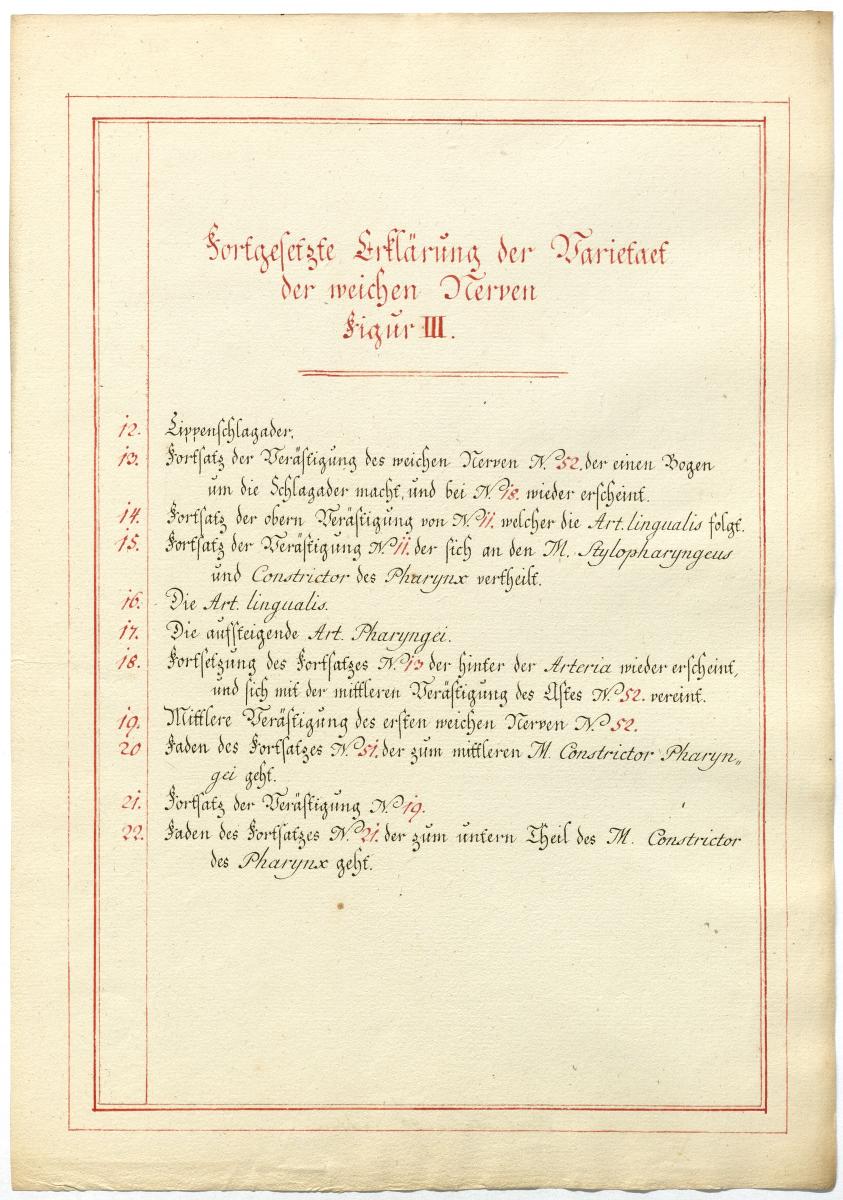 Fortgesetzte Erklärung der Varietaet
der weichen Nerven
Figur III.
12. Lippenschlagader.
13. Fortsatz der Verästigung des weichen Nerven No 52. der einen Bogen
um die Schlagader macht, und bei No 18. wieder erscheint.
14. Fortsatz der obern Verästigung von No 11. welcher die Art. lingualis folgt.
15. Fortsatz der Verästigung No 11. der sich an den M. Stylopharyngeus
und Constrictor des Pharynx vertheilt.
16. Die Art. lingualis.
17. Die aufsteigende Art. Pharyngei.
18. Fortsetzung des Fortsatzes No 13 der hinter der Arteria wieder erscheint,
und sich mit der mittleren Verästigung des Astes No 52. vereint.
19. Mittlere Verästigung des ersten weichen Nerven No 52.
20 Faden des Fortsatzes No 51. der zum mittleren M. Constrictor Pharyn„
gei geht.
21. Fortsatz der Verästigung No 19.
22. Faden des Fortsatzes No 21. der zum untern Theil des M. Constrictor
des Pharynx geht.